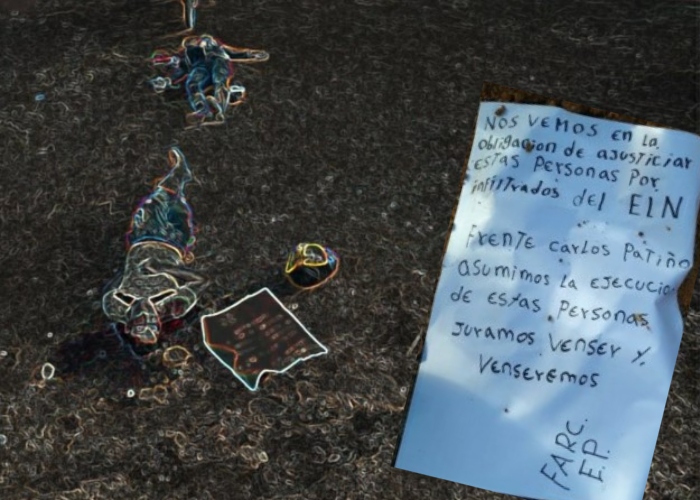 NOS VEMOS EN LA
obligacion DE AJUSTICIAR
ESTAS PERSONAS POR
infiltrados del ELN
FRENTE CARLOS PATIÑO
ASUMIMOS LA EJECUCIO
DE ESTAS PERSONAS
JURAMOS VENSER Y.
VENSEREMOS
FARC.
E.P.